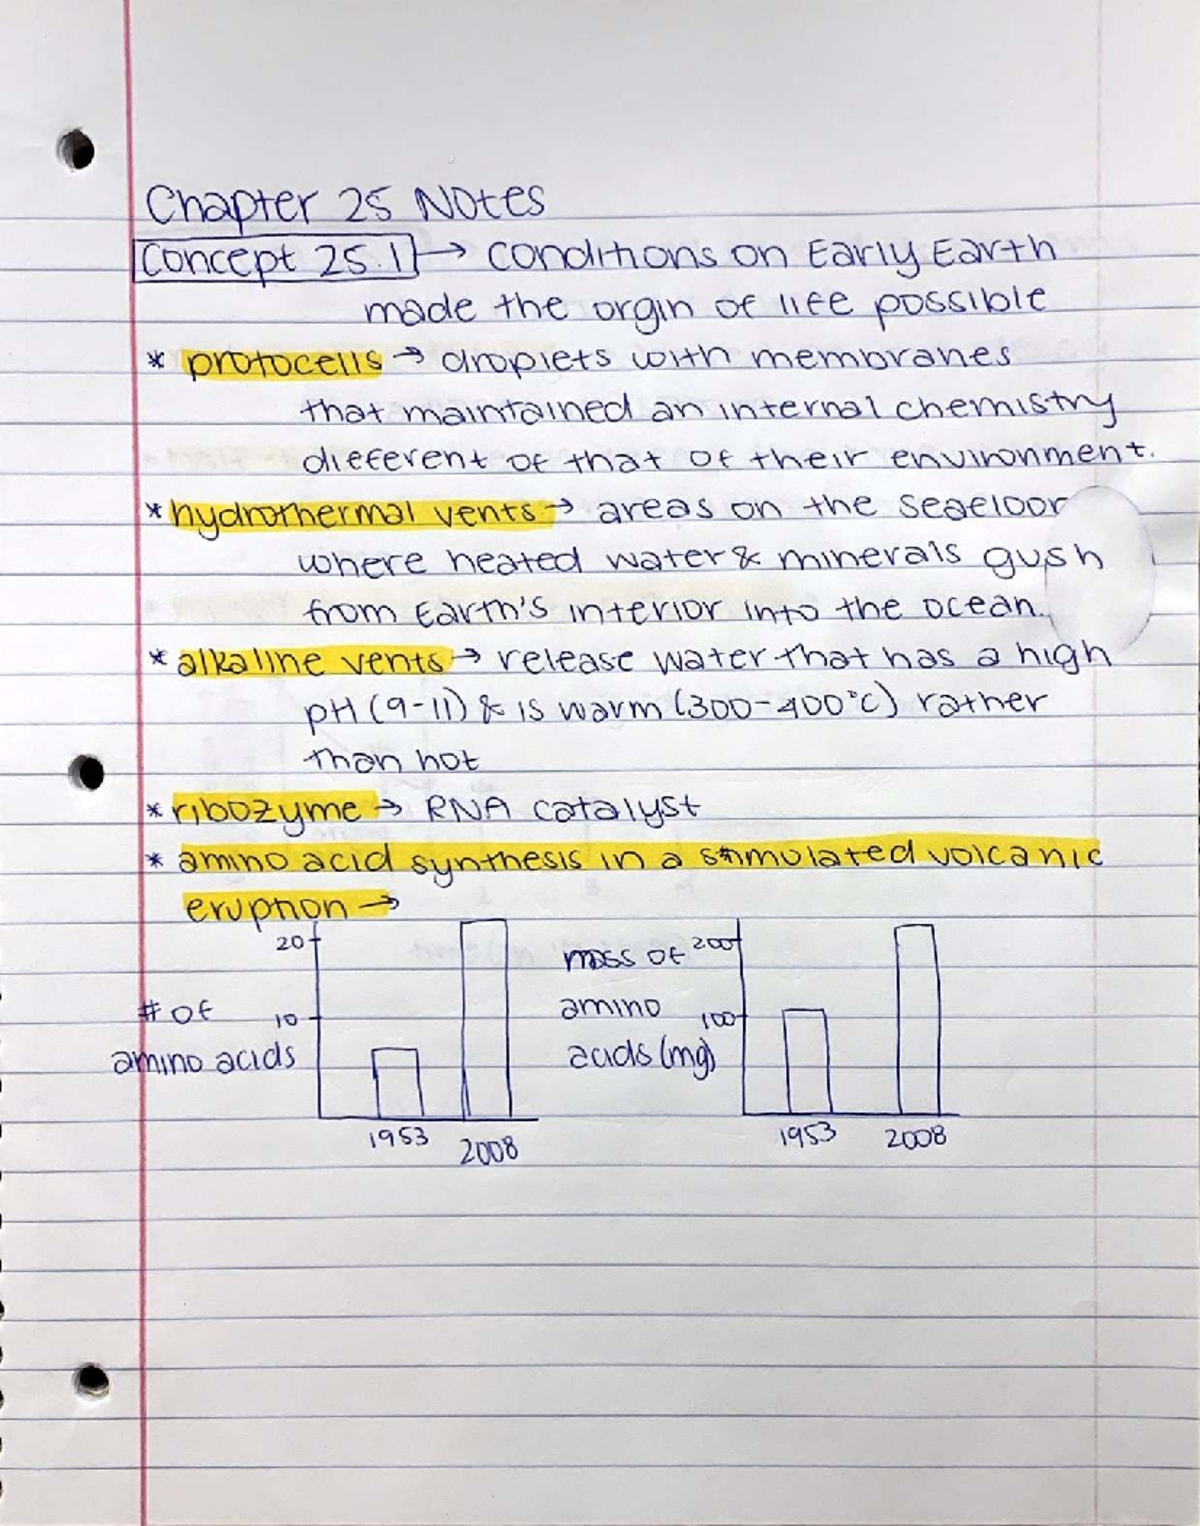 Chapter 25 Notes
Concept 25.1 → conditions on Early Earth
made the orgin of life possible
* protocells → droplets with membranes
that maintained an internal chemistry
different of that of their environment.
* hydrothermal vents → areas on the seafloor
where heated water & minerals gush
from Earth's interior into the ocean.
* alkaline vents → release water that has a high
pH (9-11) & is warm (300-400°C) rather
than hot
* ribozyme → RNA catalyst
* amino acid synthesis in a stimulated volcanic
eruption →
20
10
# of
amino acids
1953
2008
mass of
amino
acids (mg)
200
100
1953
2008